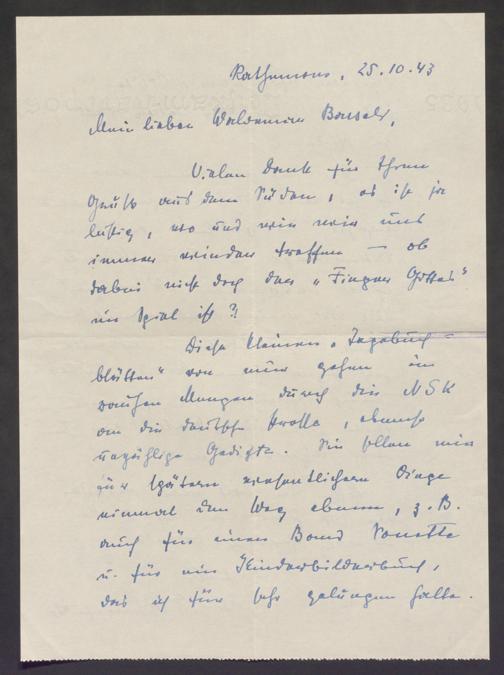 Rathenow, 25.10.43
Mein lieber Waldemar Bonsels,
Vielen Dank für Ihren
Gruß aus dem Süden, es ist ja
lustig, wo und wie wir uns
immer wieder treffen — ob
dabei nicht doch der „Finger Gottes"
im Spiel ist?!
Diese kleinen „Tagebuch-
blätter" von mir gehen in
rauhen Mengen durch die NSK
an die deutsche Presse, ebenso
unzählige Gedichte. Sie sollen mir
für spätere wesentlichere Dinge
einmal den Weg ebnen, z.B.
auch für einen Band Sonette
u. für ein Kinderbilderbuch,
das ich für sehr gelungen halte.